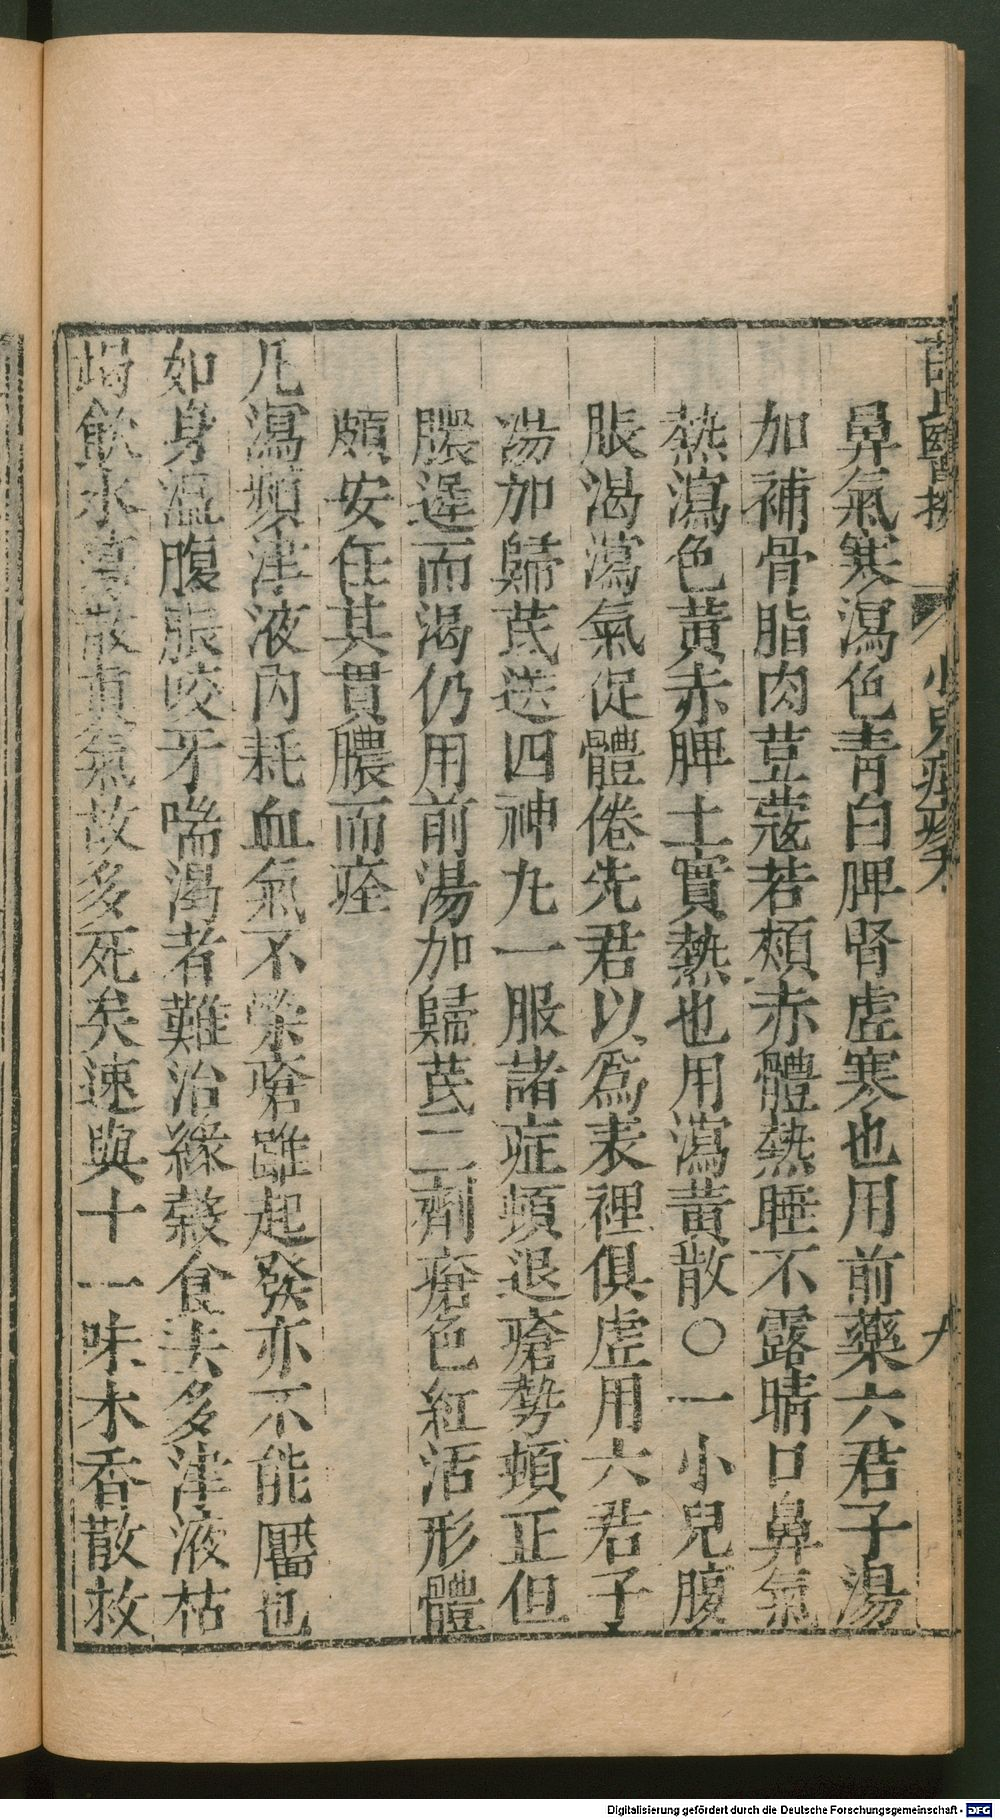 薛氏醫按 小兒痘疹 九
鼻氣寒瀉色靑白脾腎虛寒也用前藥六君子湯
加補骨脂肉荳蔻若頰赤體熱睡不露睛口鼻氣
熱瀉色黃赤脾土實熱也用瀉黃散○一小兒腹
脹渴瀉氣促體倦先君以爲表裡俱虛用六君子
湯加歸芪送四神丸一服諸症頓退瘡勢頓正但
膿遲而渴仍用前湯加歸芪二劑瘡色紅活形體
頗安任其貫膿而痊
凡瀉頻津液內耗血氣不榮瘡雖起發亦不能靨也
如身溫腹脹咬牙喘渴者難治緣榖食去多津液枯
竭飲水蕩散眞氣故多死矣速與十一味木香散救
Digitalisierung gefördert durch die Deutsche Forschungsgemeinschaft - DFG